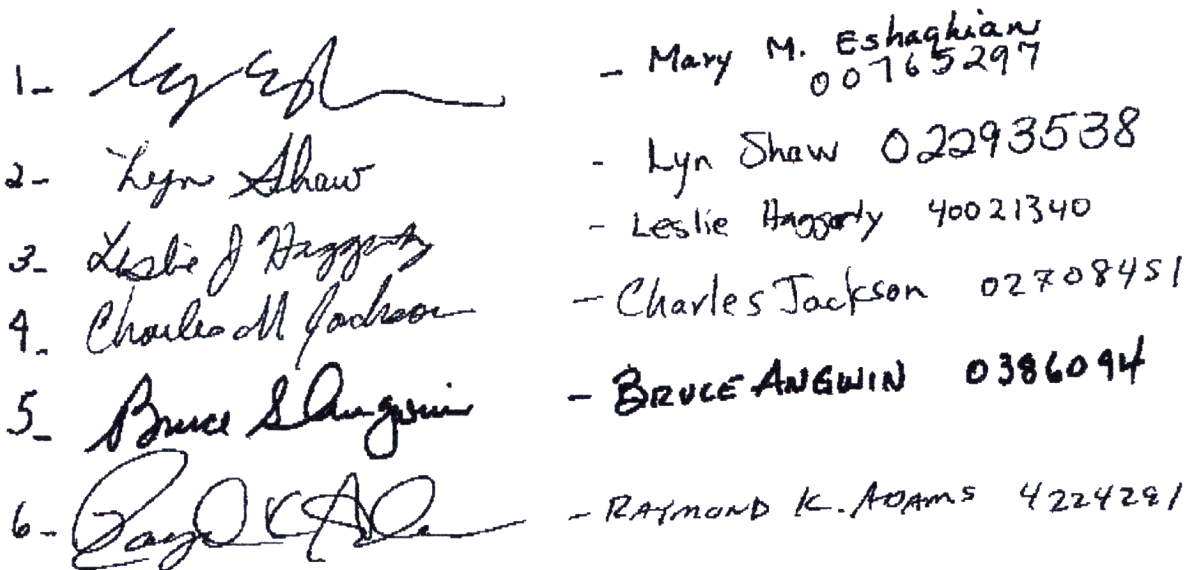 1- - Mary M. Eshaghian
00765297
2- Lyn Shaw - Lyn Shaw 02293538
3- Leslie J Haggarty - Leslie Haggarty 40021340
4- Charles M Jackson - Charles Jackson 02708451
5- Bruce S Angwin - BRUCE ANGWIN 0386094
6- - RAYMOND K. ADAMS 4224281